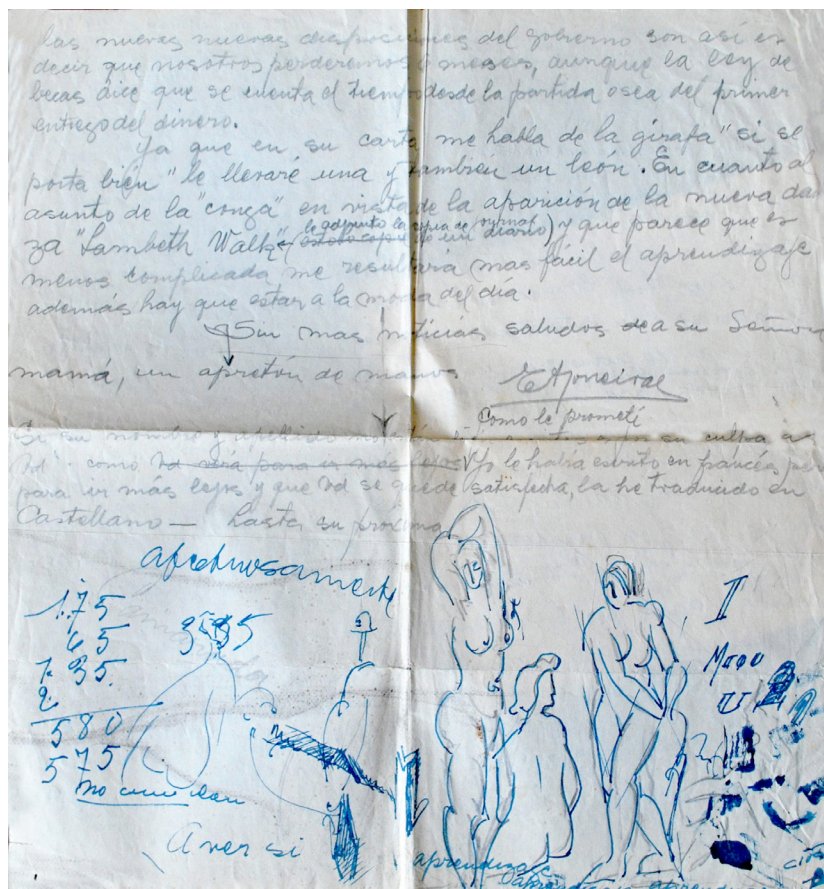 las nuevas nuevas disposiciones del gobierno son así es
decir que nosotros perderemos 6 meses, aunque la ley de
becas dice que se cuenta el tiempo desde la partida osea del primer
entrego del dinero.
Ya que en su carta me habla de la girafa "si se
porta bien" le llevaré una y también un leon. En cuanto al
asunto de la "conga" en vista de la aparición de la nueva dan
za "Lambeth Walk" (le adjunto la copia de
de un diario) y que parece que es
menos complicada me resultaria mas fácil el aprendizaje
además hay que estar a la moda del día.
Sin mas noticias saludos a su Señora
mamá, un apretón de manos
Como le prometí
Si su nombre y apellido su culpa
Vd. como Yo le había escrito en francés, pero
para ir más lejos y que Vd se quede satisfecha, la he traducido en
Castellano — hasta su próxima
afectuosamente
1.75
65
1.35
2
580
575
no
A ver si
3535
I
aprendizaje